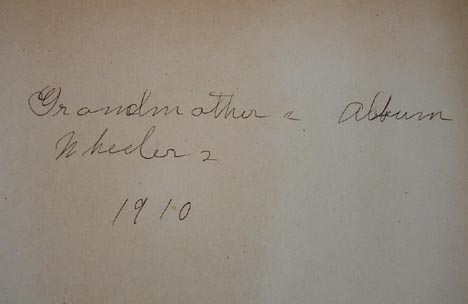 Grandmothers album
Wheelers
1910